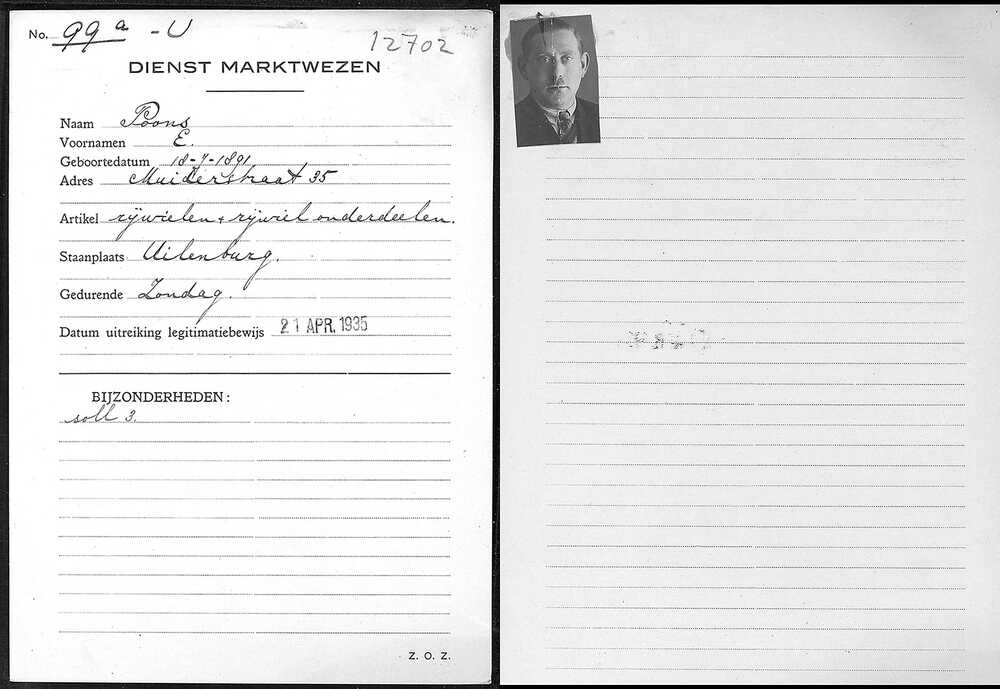 No. 99a - U
12702
DIENST MARKTWEZEN
Naam Poons
Voornamen E.
Geboortedatum 18-7-1891
Adres Muiderstraat 35
Artikel rijwielen + rijwiel onderdeelen.
Staanplaats Uilenburg.
Gedurende Zondag.
Datum uitreiking legitimatiebewijs 21 APR. 1935
BIJZONDERHEDEN:
soll 3.
Z. O. Z.